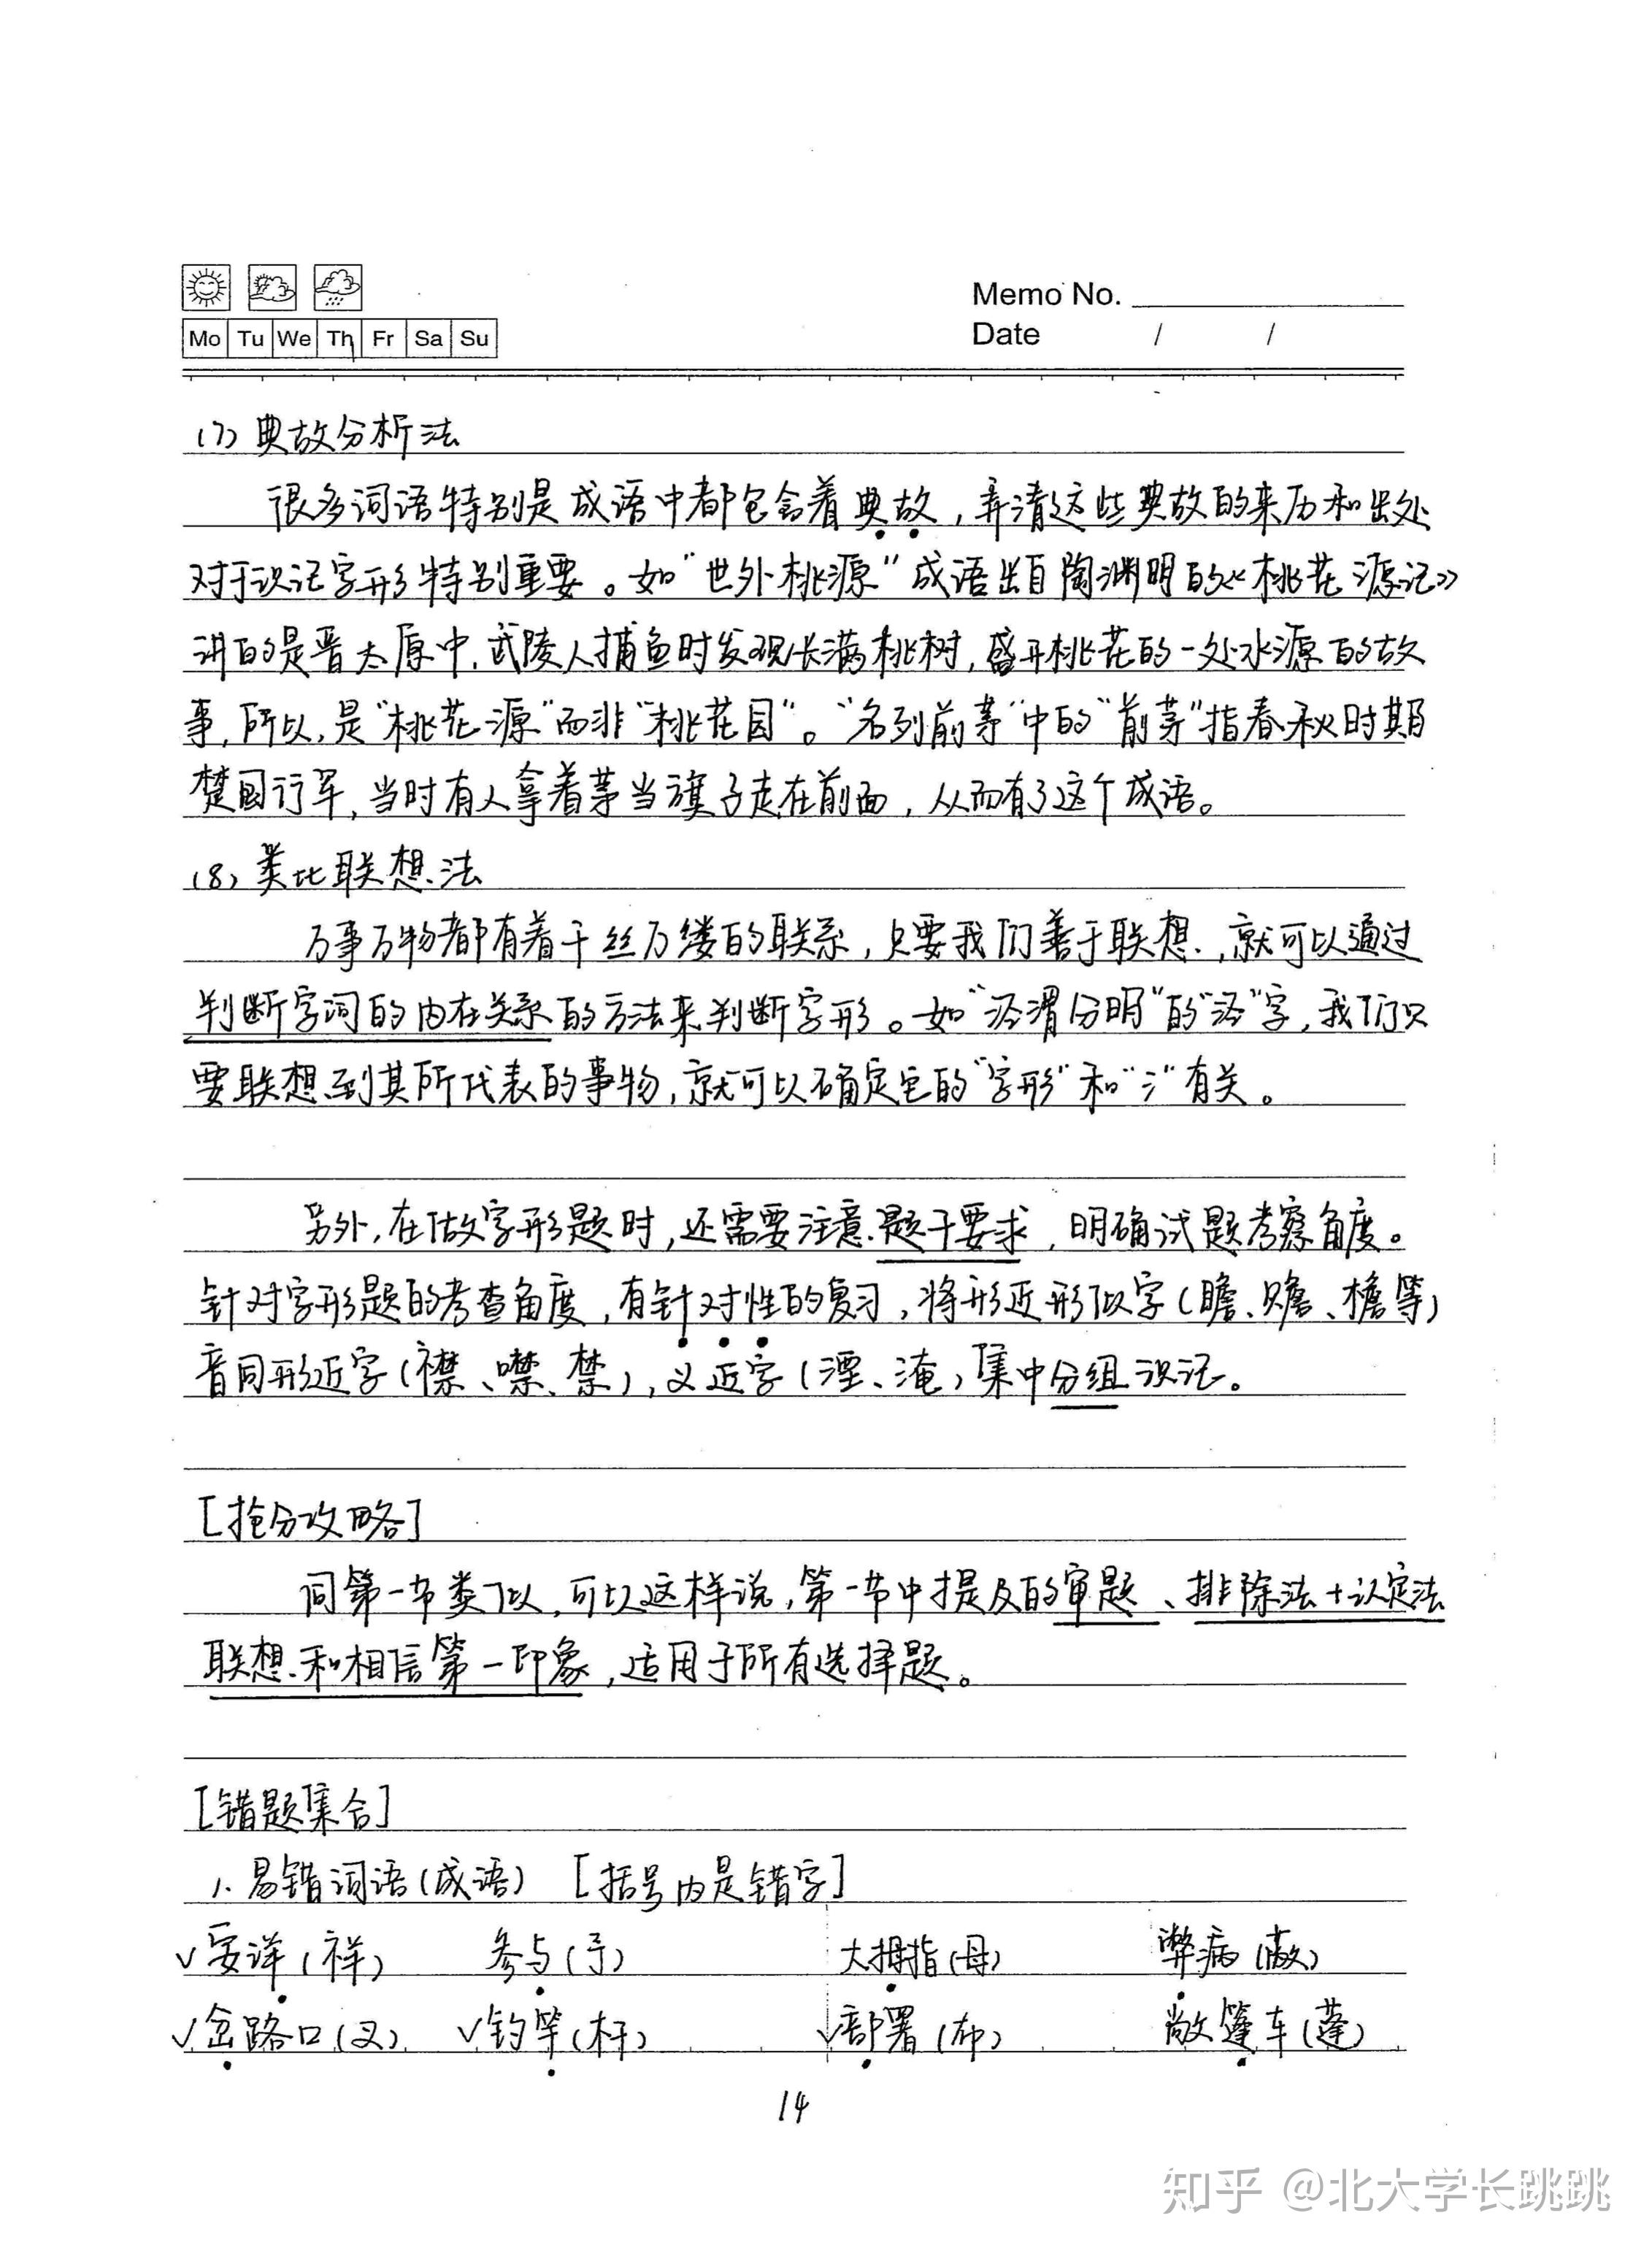 Memo No.
Mo Tu We Th Fr Sa Su
Date / /
(7) 典故分析法
很多词语特别是成语中都包含着典故，弄清这些典故的来历和出处
对于识记字形特别重要。如“世外桃源”成语出自陶渊明的《桃花源记》
讲的是晋太原中，武陵人捕鱼时发现长满桃树，盛开桃花的一处水源的故
事，所以，是“桃花源”而非“桃花园”。“名列前茅”中的“前茅”指春秋时期
楚国行军，当时有人拿着茅当旗子走在前面，从而有了这个成语。
(8) 类比联想法
万事万物都有着千丝万缕的联系，只要我们善于联想，就可以通过
判断字词的内在关系的方法来判断字形。如“泾渭分明”的“泾”字，我们只
要联想到其所代表的事物，就可以确定它的“字形”和“氵”有关。
另外，在做字形题时，还需要注意题干要求，明确试题考察角度。
针对字形题的考查角度，有针对性的复习，将形近形似字(瞻、赡、檐等)
音同形近字(襟、噤、禁)，义近字(湮、淹)集中分组识记。
[抢分攻略]
同第一节类似，可以这样说，第一节中提及的审题、排除法+认定法
联想和相信第一印象，适用于所有选择题。
[错题集合]
1. 易错词语(成语) [括号内是错字]
√安详(祥) 参与(予) 大拇指(母) 弊病(蔽)
√岔路口(叉) √钓竿(杆) √部署(布) 敞篷车(蓬)
14
知乎 @北大学长跳跳